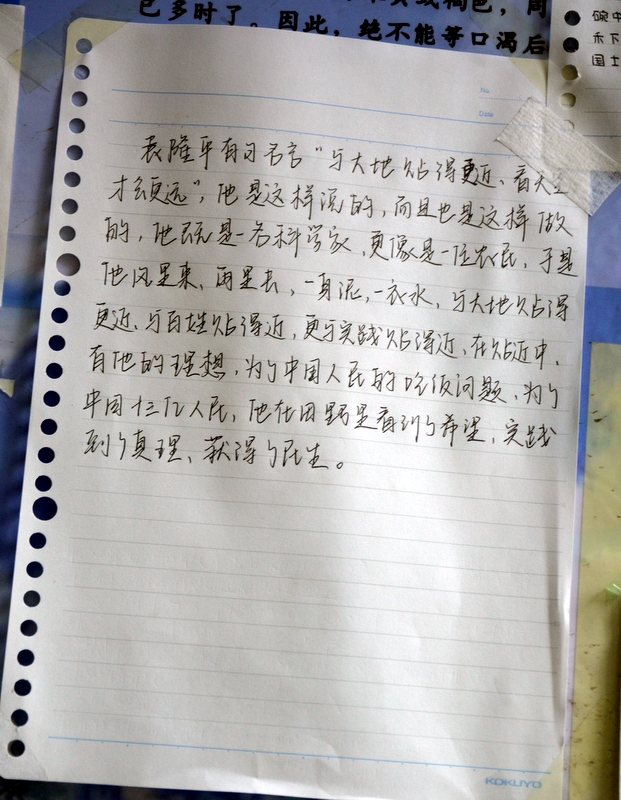 已多时了。因此，绝不能等口渴后
碗中
禾下
国士
No.
Date
袁隆平有句名言"与大地贴得更近、看天空
才会更远"，他是这样说的，而且也是这样做
的，他既是一名科学家，更像是一位农民，于是
他风里来、雨里去，一身泥，一衣水，与大地贴得
更近、与百姓贴得近，更与实践贴得近、在贴近中，
有他的理想，为了中国人民的吃饭问题、为了
中国十三亿人民，他在田野里看到了希望，实践
到了真理、获得了民生。
KOKUYO